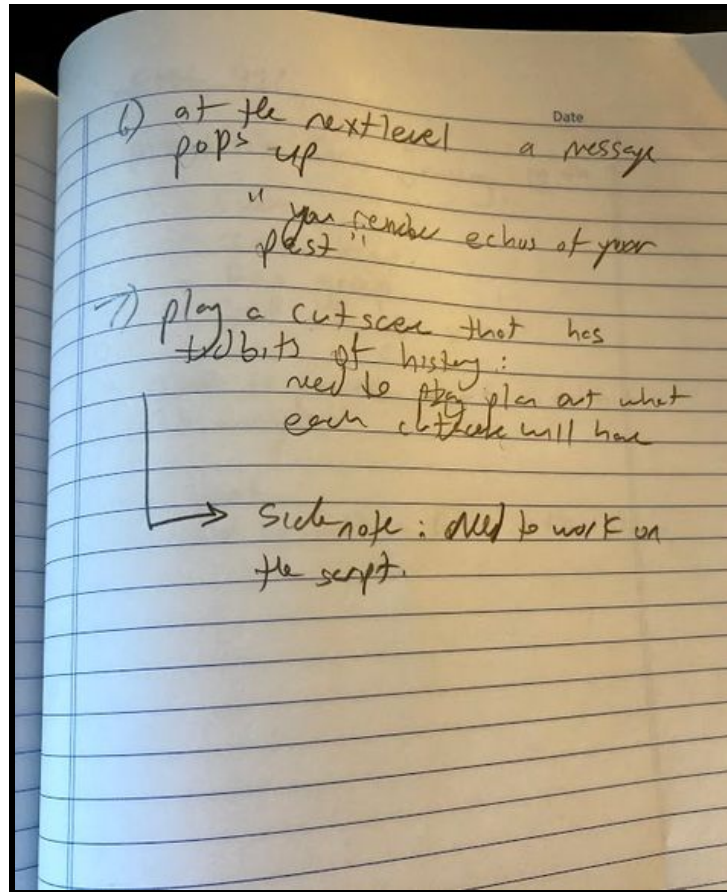 Date
6) at the next level a message
pops up
"you remember echos of your
past"
7) play a cutscene that has
tidbits of history:
need to plan out what
each cutscene will have
Sidenote: need to work on
the script.